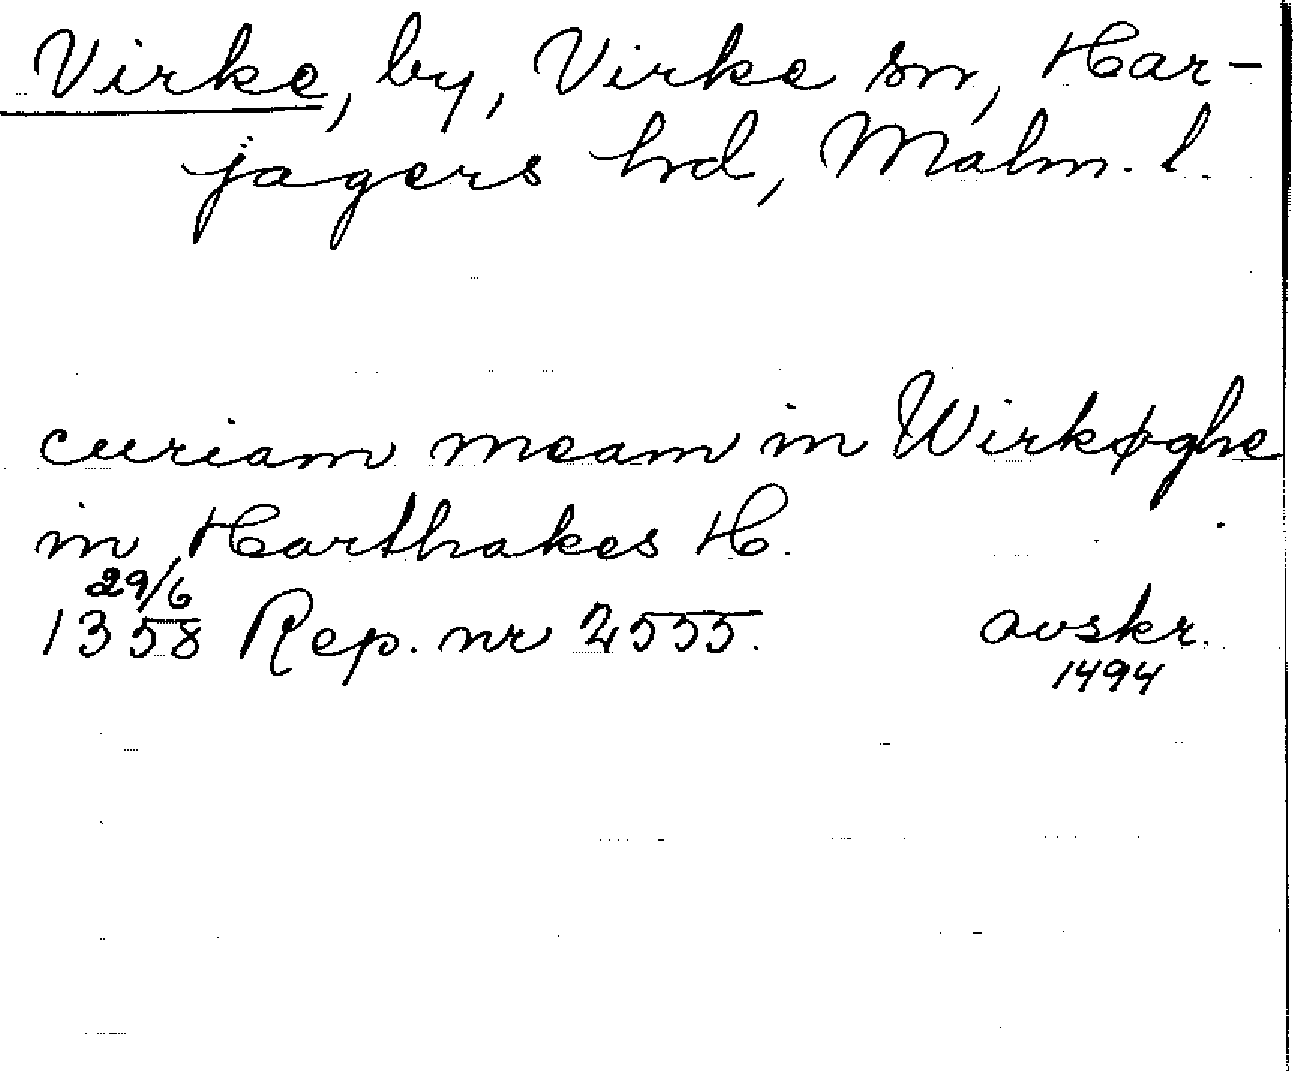 Virke, by, Virke sn, Har-
jagers hd, Malm. l.
curiam meam in Wirkøghe
in Harthakes H.
29/6
1358 Rep. nr 2555. avskr.
1494